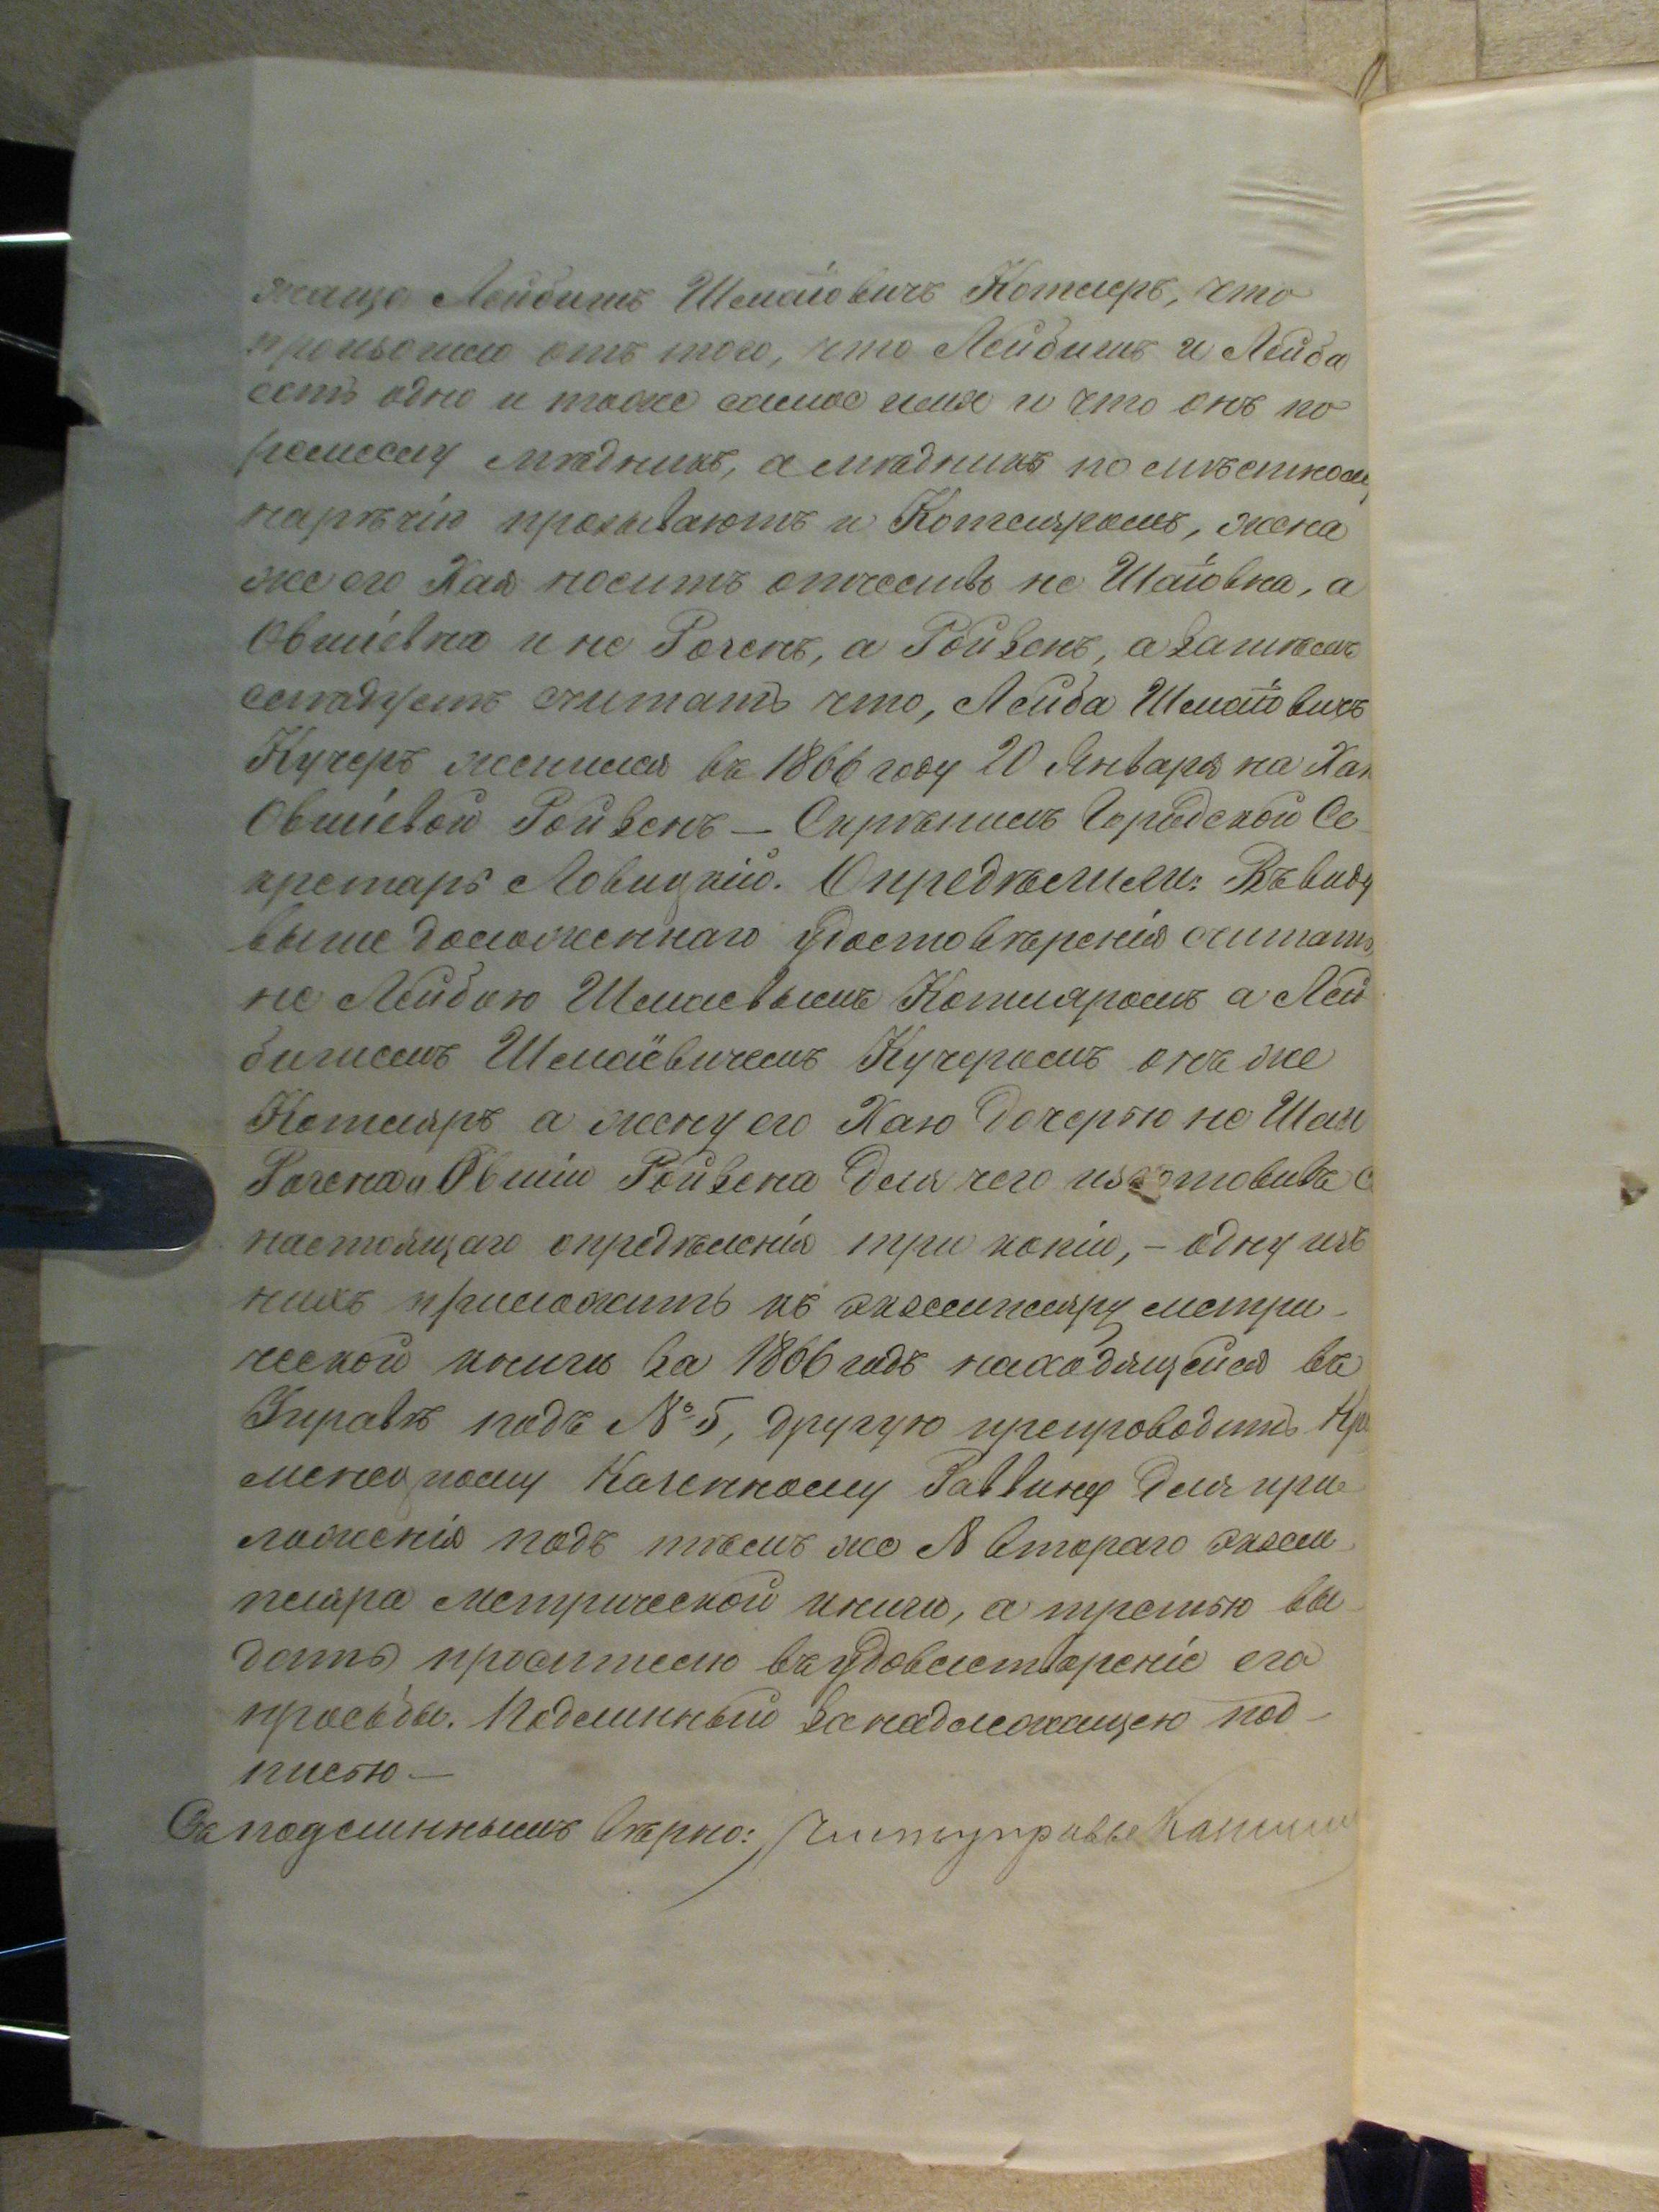 жаща Лейбишъ Шмаіовичъ Котлеръ, что
произошло отъ того, что Лейбишъ и Лейба
есть одно и тоже самое имя и что онъ по
ремеслу мѣдникъ, а мѣдникъ по мѣстному
нарѣчію прозываютъ и Котляромъ, жена
же его Хая носитъ отчество не Шаіовна, а
Овшіевна и не Роченъ, а Ройзенъ, а затѣмъ
слѣдуетъ считать что, Лейба Шмаіовичъ
Кучеръ женился въ 1866 году 20 Января на Хаи
Овшіевой Ройзенъ — Скрѣпилъ Городской Се
кретарь Ловицкій. Опредѣлили: Въ виду
выше доложеннаго удостовѣренія считать
не Лейбою Шмаевымъ Котляромъ а Лей
бишемъ Шмаіевичемъ Кучеромъ онъ же
Котляръ а жену его Хаю дочерью не Шаи
Рочена и Овшіи Ройзена для чего изготовивъ с
настоящаго опредѣленія три копіи, - одну изъ
нихъ приложить къ экземпляру метри-
ческой книги за 1866 годъ находящейся въ
Управѣ подъ № 5, другую препроводить Кре
менецкому Казенному Раввину для при
ложенія подъ тѣмъ же № втораго экзем
пляра метрической книги, а третью вы-
дать просителю въ удовлетвореніе его
просьбы. Подлинный за надлежащею под-
писью —
Съ подлиннымъ вѣрно: